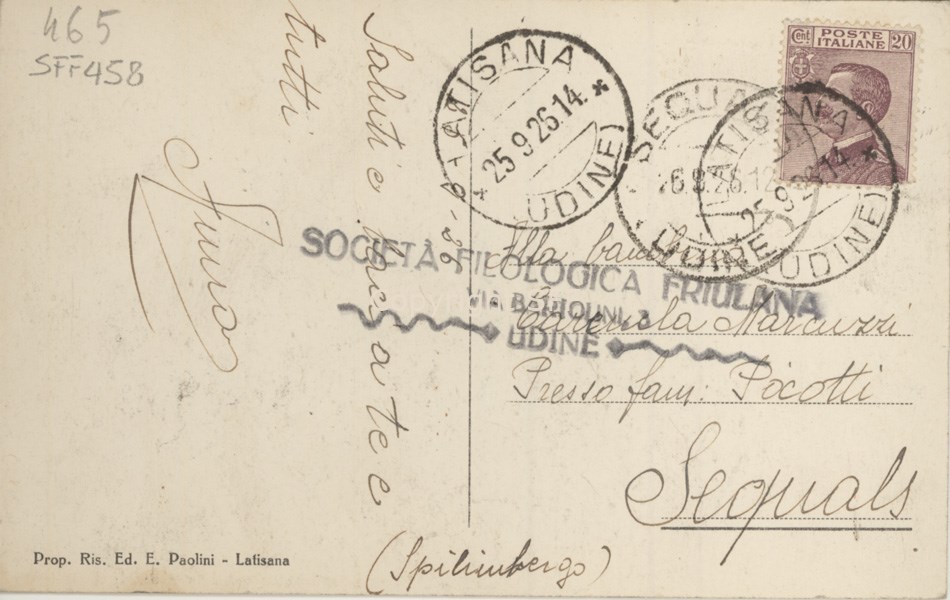 465
SFF458
Saluti e baci a te e
tutti
Nino
LATISANA
25.9.26.14.
(UDINE)
SEQUALS
UDINE
LATISANA
25.9.26.14.
(UDINE)
Cent. POSTE ITALIANE 20
SOCIETÀ FILOLOGICA FRIULANA
VIA BARTOLINI, 3
UDINE
Alla bambina
Marcuzzi
Presso fam: Picotti
Sequals
(Spilimbergo)
Prop. Ris. Ed. E. Paolini - Latisana